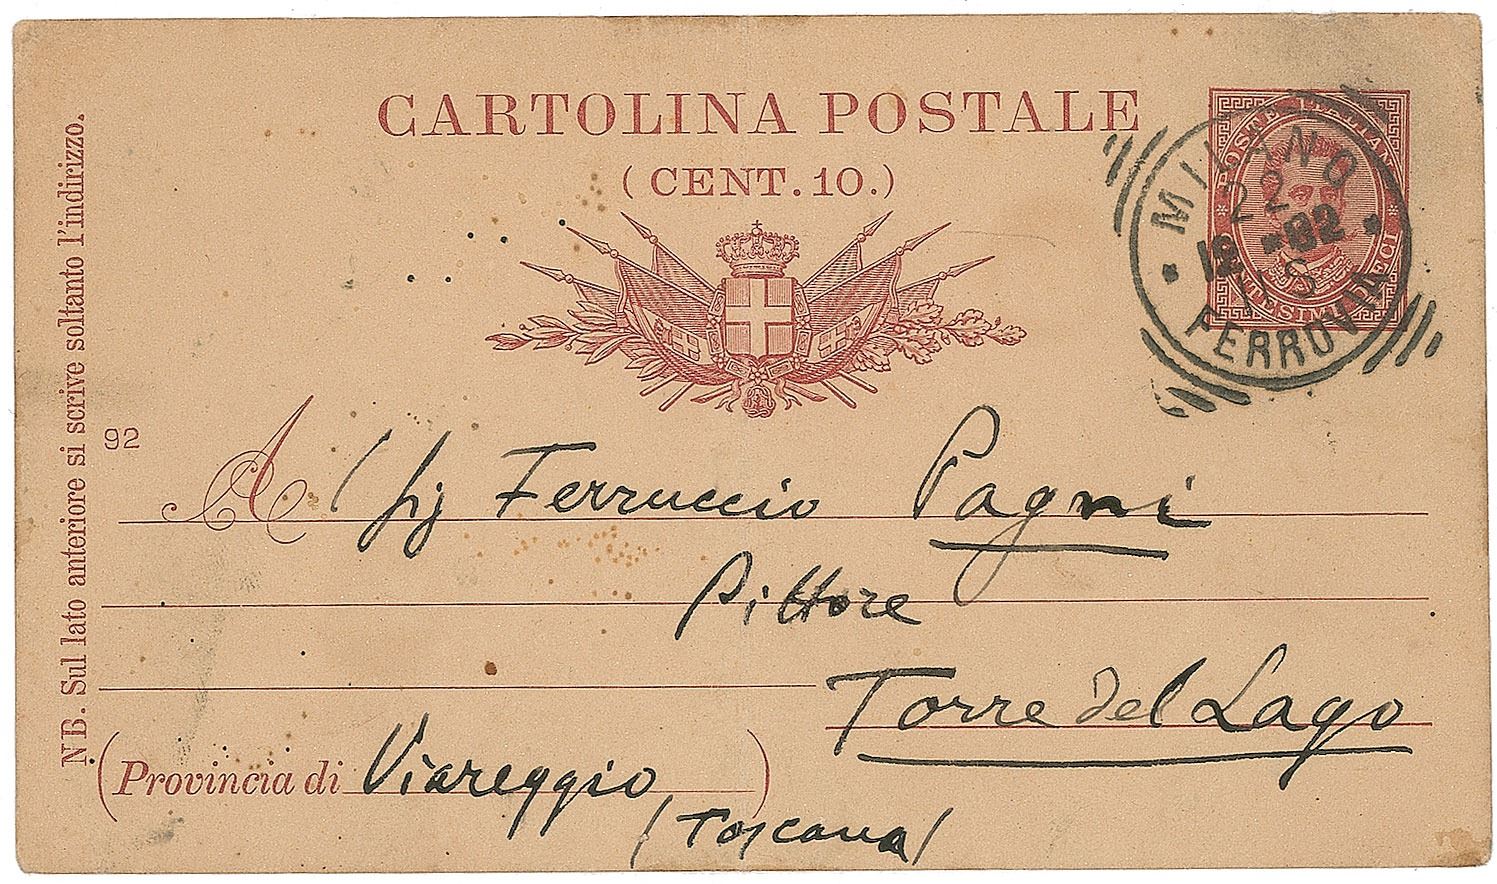 CARTOLINA POSTALE
(CENT. 10.)
POSTE ITALIANE
MILANO
22
12 - 92
S
FERROVIA
NB. Sul lato anteriore si scrive soltanto l'indirizzo.
92
A Sig Ferruccio Pagni
Pittore
Torre del Lago
(Provincia di Viareggio)
(Toscana)